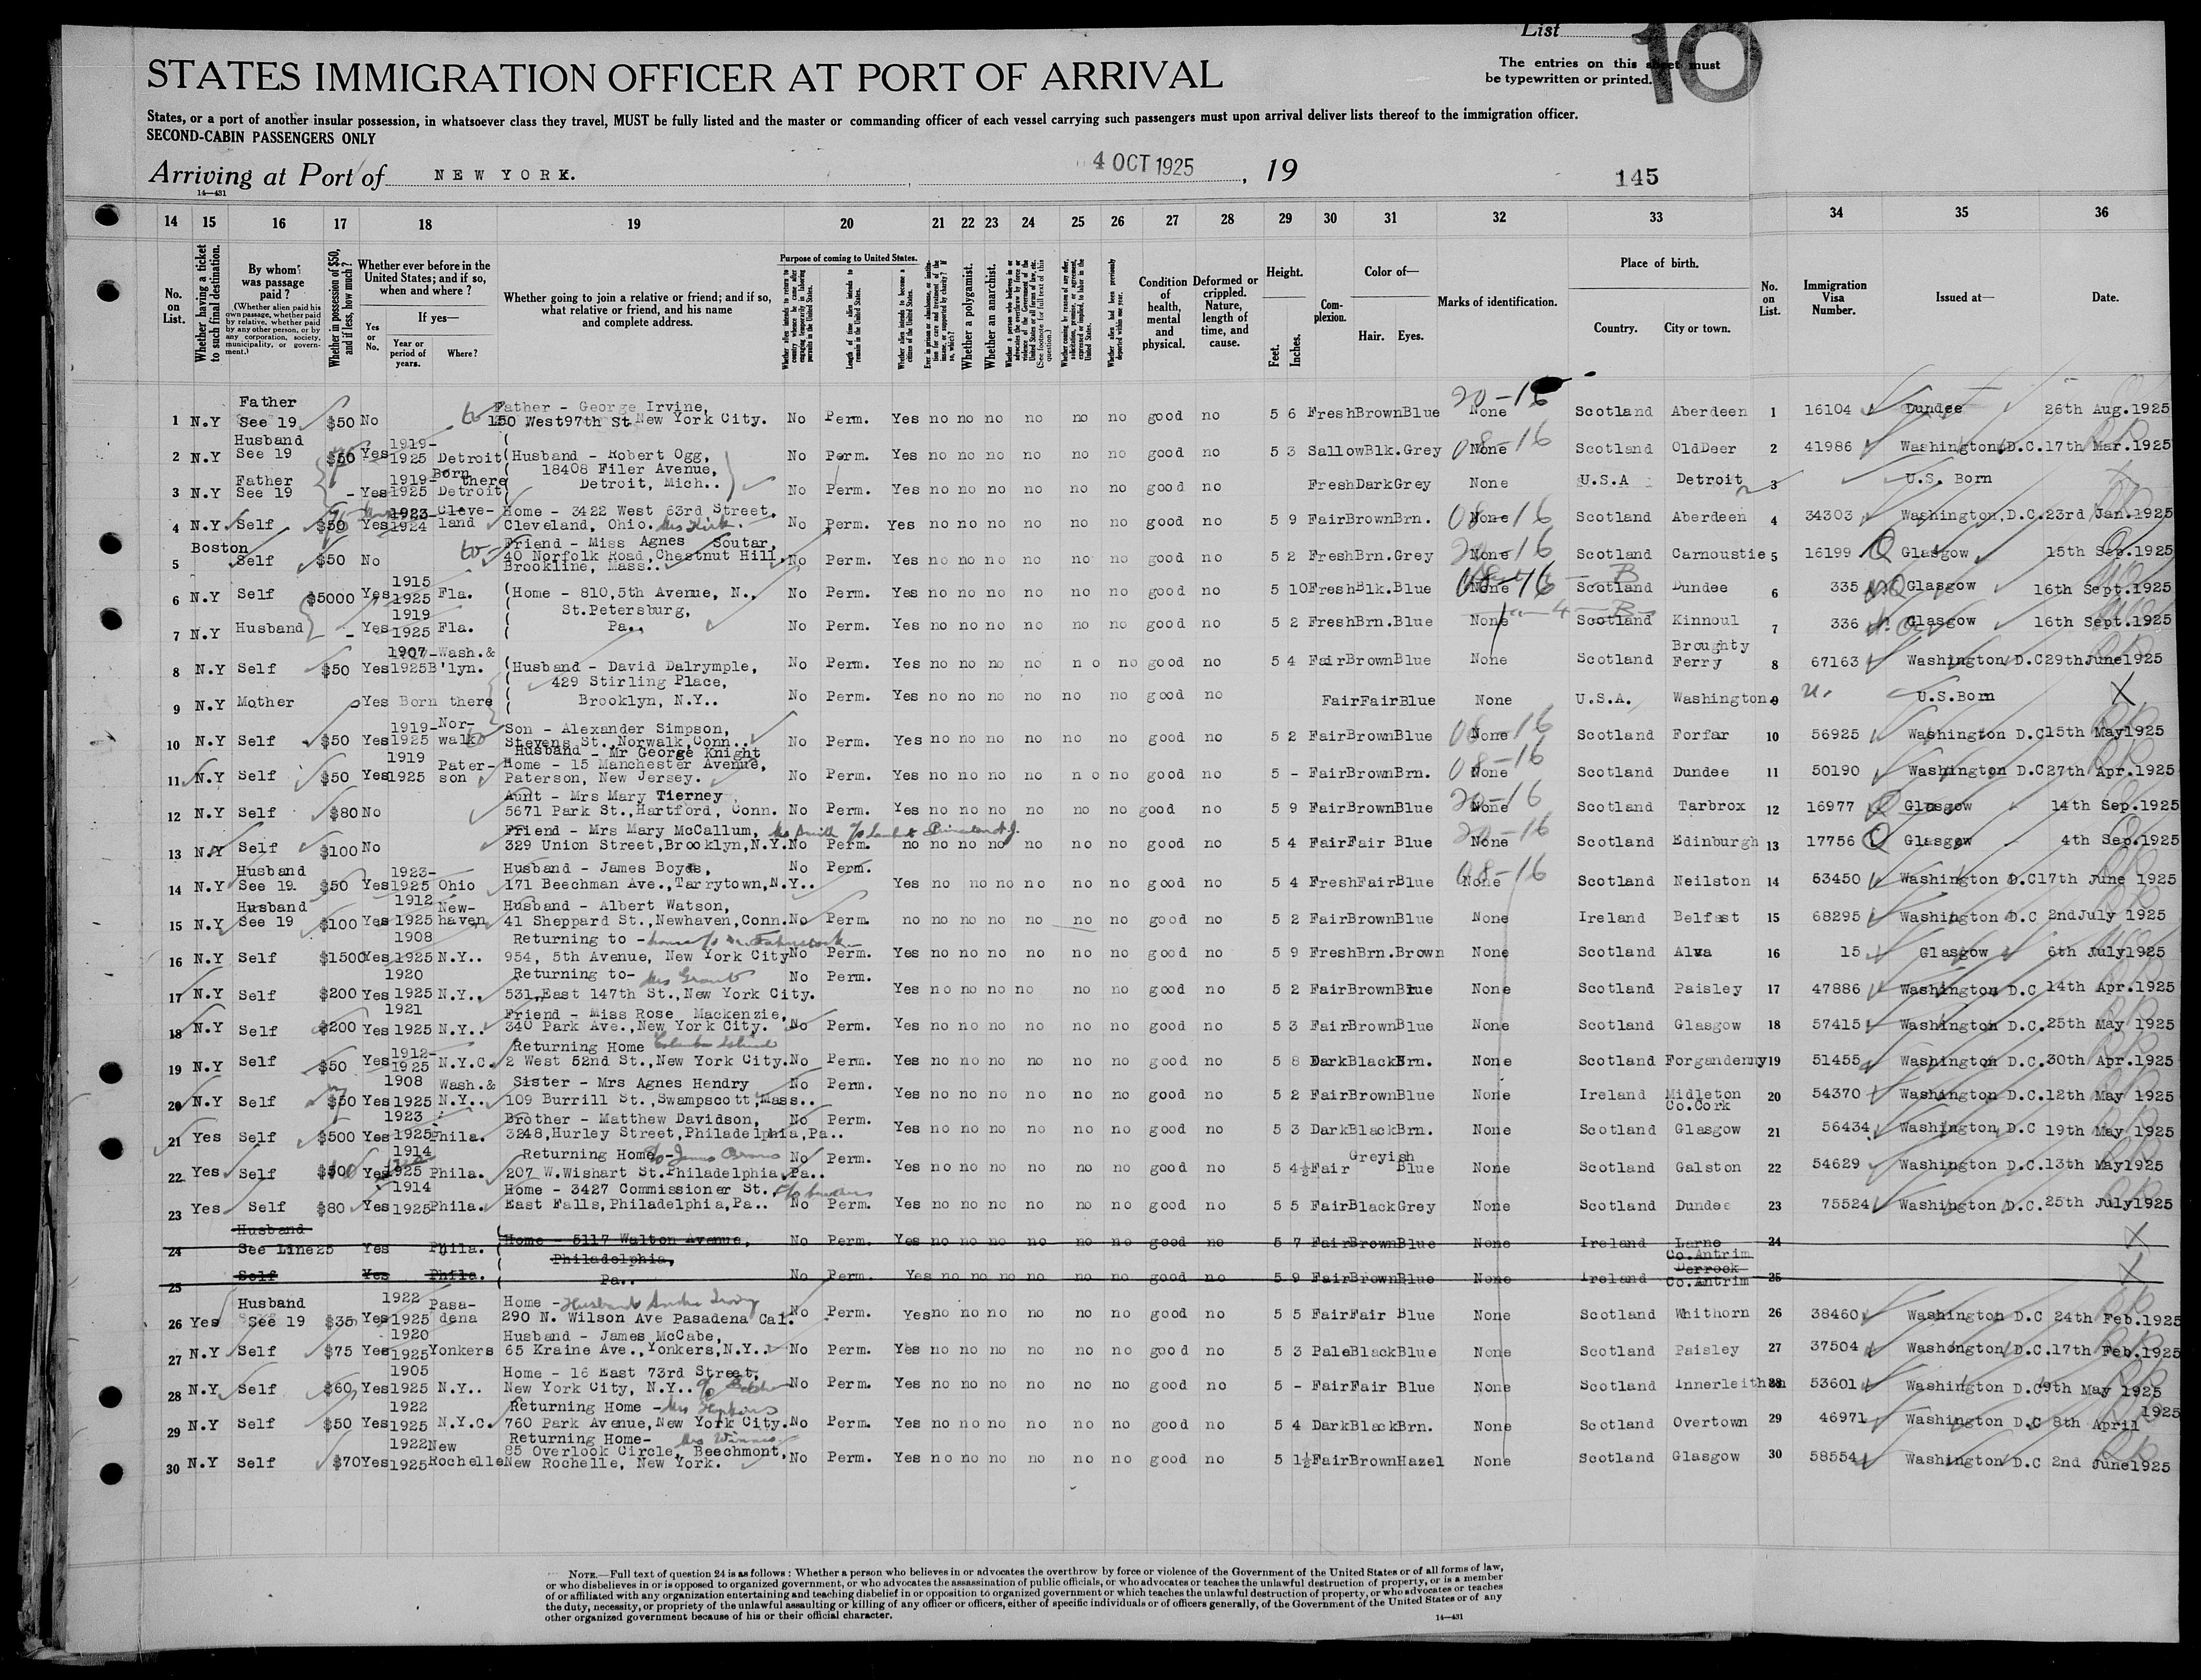 List
10
The entries on this sheet must
be typewritten or printed.
STATES IMMIGRATION OFFICER AT PORT OF ARRIVAL
States, or a port of another insular possession, in whatsoever class they travel, MUST be fully listed and the master or commanding officer of each vessel carrying such passengers must upon arrival deliver lists thereof to the immigration officer.
SECOND-CABIN PASSENGERS ONLY
Arriving at Port of NEW YORK. 4 OCT 1925, 19 145
14—431
14 15 16 17 18 19 20 21 22 23 24 25 26 27 28 29 30 31 32 33 34 35 36
No. on List.
Whether having a ticket to such final destination.
By whom was passage paid?
(Whether alien paid his own passage, whether paid by relative, whether paid by any other person, or by any corporation, society, municipality, or government.)
Whether in possession of $50, and if less, how much?
Whether ever before in the United States; and if so, when and where?
If yes—
Yes or No.
Year or period of years.
Where?
Whether going to join a relative or friend; and if so, what relative or friend, and his name and complete address.
Purpose of coming to United States.
Whether alien intends to return to country whence he came after engaging temporarily in laboring pursuits in the United States.
Length of time alien intends to remain in the United States.
Whether alien intends to become a citizen of the United States.
Whether a polygamist.
Whether an anarchist.
Condition of health, mental and physical.
Deformed or crippled. Nature, length of time, and cause.
Height.
Feet.
Inches.
Complexion.
Color of—
Hair. Eyes.
Marks of identification.
Place of birth.
Country. City or town.
No. on List.
Immigration Visa Number.
Issued at—
Date.
1 N.Y Father See 19 $50 No Father - George Irvine, 150 West 97th St New York City. No Perm. Yes no no no no no no good no 5 6 Fresh Brown Blue None 20-16 Scotland Aberdeen 1 16104 Dundee 26th Aug. 1925
2 N.Y Husband See 19 $50 Yes 1919-1925 Detroit (Husband - Robert Ogg, 18408 Filer Avenue, Detroit, Mich.. No Perm. Yes no no no no no no good no 5 3 Sallow Blk. Grey None 08-16 Scotland Old Deer 2 41986 Washington, D.C. 17th Mar. 1925
3 N.Y Father See 19 - Yes 1919-1925 Born there Detroit No Perm. Yes no no no no no no good no Fresh Dark Grey None U.S.A Detroit 3 U.S. Born
4 N.Y. Self $50 Yes 1923-1924 Cleveland Home - 3422 West 63rd Street. Cleveland, Ohio. Mrs Kirk. No Perm. Yes no no no no no no good no 5 9 Fair Brown Brn. None 08-16 Scotland Aberdeen 4 34303 Washington, D.C. 23rd Jan. 1925
5 Boston Self $50 No Friend - Miss Agnes Soutar, 40 Norfolk Road, Chestnut Hill, Brookline, Mass.. No Perm. Yes no no no no no no good no 5 2 Fresh Brn. Grey None 20-16 Scotland Carnoustie 5 16199 Glasgow 15th Sep. 1925
6 N.Y Self $5000 Yes 1915 1925 Fla. (Home - 810, 5th Avenue, N., St. Petersburg, Pa.. No Perm. Yes no no no no no no good no 5 10 Fresh Blk. Blue None 08-16 B Scotland Dundee 6 335 Glasgow 16th Sept. 1925
7 N.Y Husband - Yes 1919 1925 Fla. No Perm. Yes no no no no no no good no 5 2 Fresh Brn. Blue None Scotland Kinnoul 7 336 Glasgow 16th Sept. 1925
8 N.Y Self $50 Yes 1907-1925 Wash.& B'lyn. (Husband - David Dalrymple, 429 Stirling Place, Brooklyn, N.Y.. No Perm. Yes no no no no no no good no 5 4 Fair Brown Blue None Scotland Broughty Ferry 8 67163 Washington D.C 29th June 1925
9 N.Y Mother Yes Born there No Perm. Yes no no no no no no good no Fair Fair Blue None U.S.A. Washington 9 U.S. Born X
10 N.Y Self $50 Yes 1919-1925 Norwalk Son - Alexander Simpson, Stevens St., Norwalk, Conn.. No Perm. Yes no no no no no no good no 5 2 Fair Brown Blue None 08-16 Scotland Forfar 10 56925 Washington D.C 15th May 1925
11 N.Y Self $50 Yes 1919 1925 Paterson Husband - Mr George Knight Home - 15 Manchester Avenue, Paterson, New Jersey. No Perm. Yes no no no no no no good no 5 - Fair Brown Brn. None 08-16 Scotland Dundee 11 50190 Washington D.C 27th Apr. 1925
12 N.Y Self $80 No Aunt - Mrs Mary Tierney 5671 Park St., Hartford, Conn. No Perm. Yes no no no no no no good no 5 9 Fair Brown Blue None 20-16 Scotland Tarbrox 12 16977 Glasgow 14th Sep. 1925
13 N.Y Self $100 No Friend - Mrs Mary McCallum, 329 Union Street, Brooklyn, N.Y. No Perm. no no no no no no no good no 5 4 Fair Fair Blue None 20-16 Scotland Edinburgh 13 17756 Glasgow 4th Sep. 1925
14 N.Y Husband See 19 $50 Yes 1923-1925 Ohio Husband - James Boyde, 171 Beechman Ave., Tarrytown, N.Y.. No Perm. Yes no no no no no no good no 5 4 Fresh Fair Blue None 08-16 Scotland Neilston 14 63450 Washington D.C 17th June 1925
15 N.Y Husband See 19 $100 Yes 1912 1925 Newhaven Husband - Albert Watson, 41 Sheppard St., Newhaven, Conn. No Perm. no no no no no no no good no 5 2 Fair Brown Blue None Ireland Belfast 15 68295 Washington D.C 2nd July 1925
16 N.Y Self $1500 Yes 1908 1925 N.Y.. Returning to - 954, 5th Avenue, New York City No Perm. Yes no no no no no no good no 5 9 Fresh Brn. Brown None Scotland Alva 16 15 Glasgow 6th July 1925
17 N.Y Self $200 Yes 1920 1925 N.Y.. Returning to- Mrs Grant 531, East 147th St., New York City. No Perm. Yes no no no no no no good no 5 2 Fair Brown Blue None Scotland Paisley 17 47886 Washington D.C 14th Apr. 1925
18 N.Y Self $200 Yes 1921 1925 N.Y.. Friend - Miss Rose Mackenzie, 340 Park Ave., New York City. No Perm. Yes no no no no no no good no 5 3 Fair Brown Blue None Scotland Glasgow 18 57415 Washington D.C. 25th May 1925
19 N.Y Self $50 Yes 1912-1925 N.Y.C. Returning Home 2 West 52nd St., New York City. No Perm. Yes no no no no no no good no 5 8 Dark Black Brn. None Scotland Forgandenny 19 51455 Washington D.C. 30th Apr. 1925
20 N.Y Self $50 Yes 1908 1925 Wash.& N.Y.. Sister - Mrs Agnes Hendry 109 Burrill St., Swampscott, Mass.. No Perm. Yes no no no no no no good no 5 2 Fair Brown Blue None Ireland Midleton Co.Cork 20 54370 Washington D.C. 12th May 1925
21 Yes Self $500 Yes 1923 1925 Phila. Brother - Matthew Davidson, 3248, Hurley Street, Philadelphia, Pa.. No Perm. Yes no no no no no no good no 5 3 Dark Black Brn. None Scotland Glasgow 21 56434 Washington D.C 19th May 1925
22 Yes Self $50 Yes 1914 1925 Phila. Returning Home - 207 W. Wishart St. Philadelphia, Pa.. No Perm. Yes no no no no no no good no 5 4½ Fair Greyish Blue None Scotland Galston 22 54629 Washington D.C. 13th May 1925
23 Yes Self $80 Yes 1914 1925 Phila. Home - 3427 Commissioner St., East Falls, Philadelphia, Pa.. No Perm. Yes no no no no no no good no 5 5 Fair Black Grey None Scotland Dundee 23 75524 Washington D.C. 25th July 1925
24 Husband See Line 25 Yes Phila. (Home - 5117 Walton Avenue, Philadelphia, Pa.. No Perm. Yes no no no no no no good no 5 7 Fair Brown Blue None Ireland Larne Co.Antrim 24 X
25 Self Yes Phila. No Perm. Yes no no no no no no good no 5 9 Fair Brown Blue None Ireland Derrock Co.Antrim 25 X
26 Yes Husband See 19 $35 Yes 1922 1925 Pasadena Home - Husband 290 N. Wilson Ave Pasadena Cal. No Perm. Yes no no no no no no good no 5 5 Fair Fair Blue None Scotland Whithorn 26 38460 Washington D.C 24th Feb. 1925
27 N.Y Self $75 Yes 1920 1925 Yonkers Husband - James McCabe, 65 Kraine Ave., Yonkers, N.Y.. No Perm. Yes no no no no no no good no 5 3 Pale Black Blue None Scotland Paisley 27 37504 Washongton D.C. 17th Feb. 1925
28 N.Y. Self $60 Yes 1905 1925 N.Y.. Home - 16 East 73rd Street, New York City, N.Y.. No Perm. Yes no no no no no no good no 5 - Fair Fair Blue None Scotland Innerleithen 28 53601 Washington D.C 9th May 1925
29 N.Y Self $50 Yes 1922 1925 N.Y.C. Returning Home - Mrs Hopkins 760 Park Avenue, New York City. No Perm. Yes no no no no no no good no 5 4 Dark Black Brn. None Scotland Overtown 29 46971 Washington D.C 8th April 1925
30 N.Y Self $70 Yes 1922 1925 New Rochelle Returning Home- 85 Overlook Circle, Beechmont, New Rochelle, New York. No Perm. Yes no no no no no no good no 5 1½ Fair Brown Hazel None Scotland Glasgow 30 58554 Washington D.C 2nd June 1925
NOTE.—Full text of question 24 is as follows: Whether a person who believes in or advocates the overthrow by force or violence of the Government of the United States or of all forms of law,
or who disbelieves in or is opposed to organized government, or who advocates the assassination of public officials, or who advocates or teaches the unlawful destruction of property, or is a member
of or affiliated with any organization entertaining and teaching disbelief in or opposition to organized government or which teaches the unlawful destruction of property, or who advocates or teaches
the duty, necessity, or propriety of the unlawful assaulting or killing of any officer or officers, either of specific individuals or of officers generally, of the Government of the United States or of any
other organized government because of his or their official character.
14—431